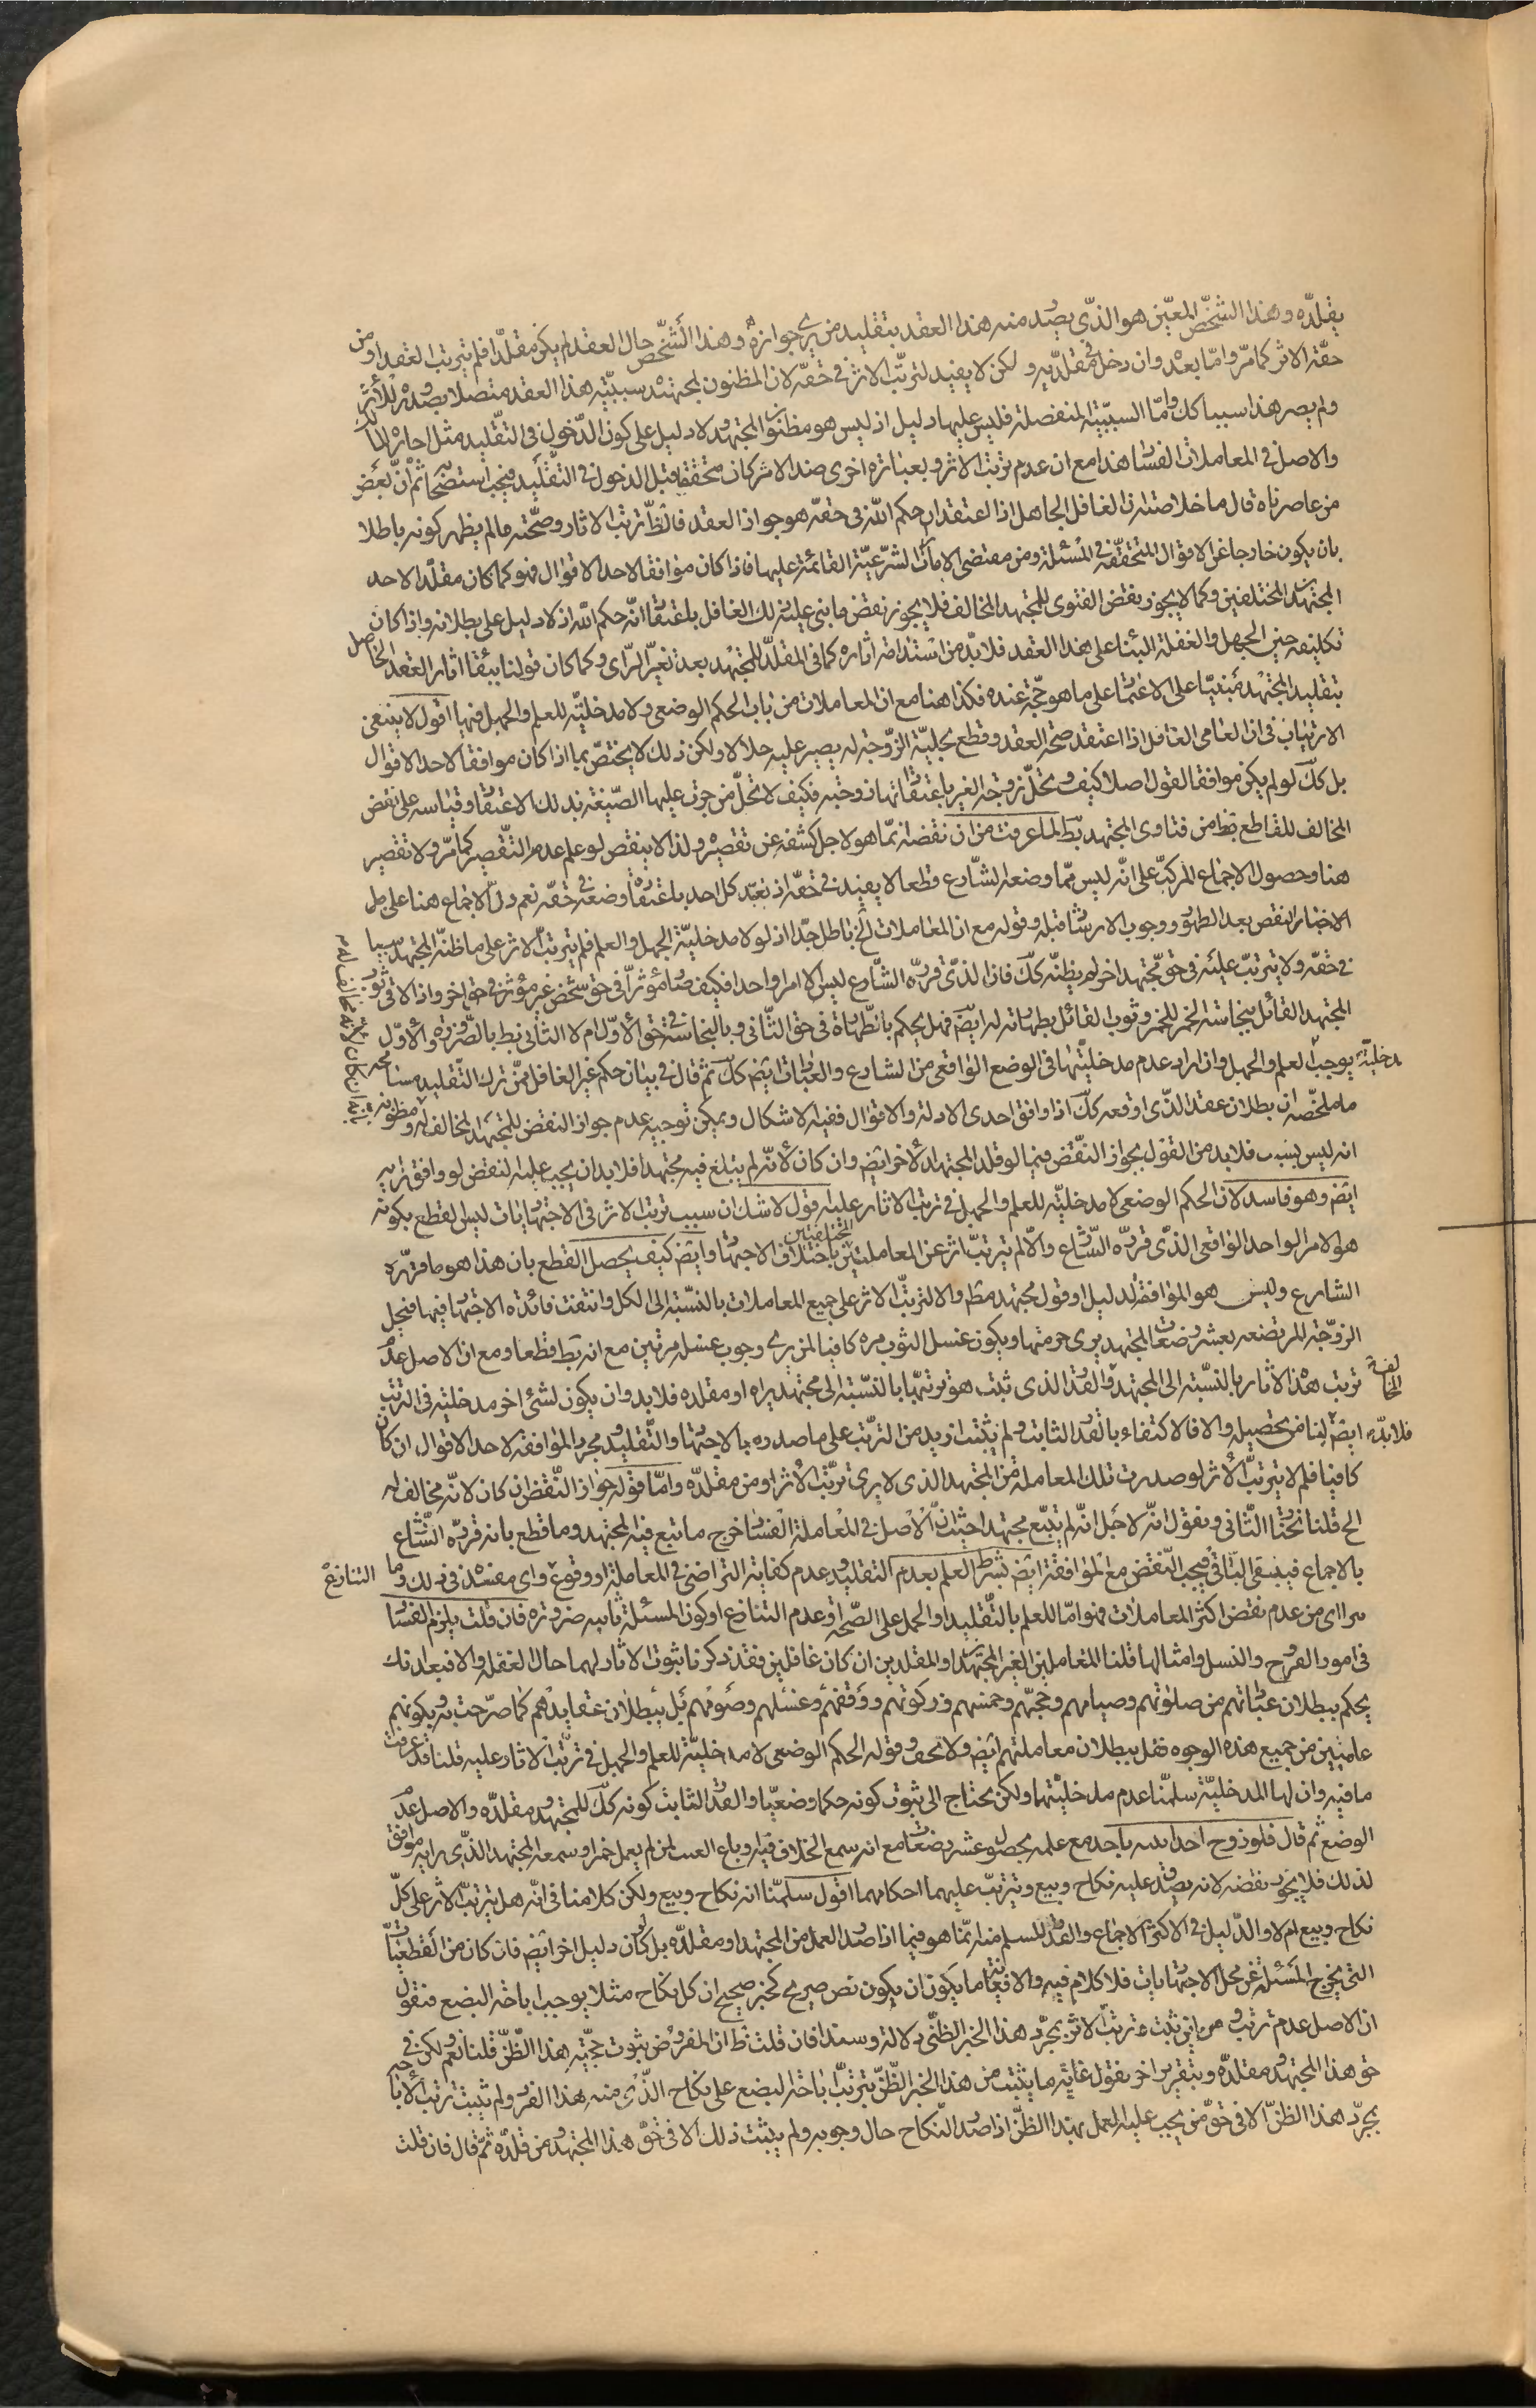 يقلّده وهذا الشخص المعيّن هو الذّى يصدر منه هذا العقد بتقليد من يرى جوازه وهذا الشّخص حال العقد لم يكن مقلّدا فلم يترتب العقد او من
حقّه الاثر كما مرّ وامّا بعد وان دخل فى مقلّديه ولكن لا يفيد لترتّب الاثر فى حقّه لان المظنون لمجتهده سببيّة هذا العقد متصلا بصدوره للأثر
ولم يصر هذا سببا كك وامّا السببيّة المنفصلة فليس عليها دليل اذ ليس هو مظنون المجتهد ولا دليل على كون الدّخول فى التّقليد مثل اجازة المالك
والاصل فى المعاملات الفساد هذا مع ان عدم ترتّب الاثر وبعبارة اخرى ضد الاثر كان متحققا قبل الدخول فى التّقليد فيجب استصحابه ثم انّ بعض
من عاصرناه قال ما خلاصته ان الغافل الجاهل اذا اعتقد ان حكم اللّه فى حقّه هو جواز العقد فالظّ ترتّب الاثار وصحّته ما لم يظهر كونه باطلا
بان يكون خارجا عن الاقوال المتحققّة فى المسئلة ومن مقتضى الامارات الشّرعيّة القائمة عليها فاذا كان موافقا لاحد الاقوال فهو كما كان مقلّدا لاحد
المجتهدين المختلفين وكما لا يجوز نقض الفتوى للمجتهد المخالف فلا يجوز نقض ما بنى عليه ذلك الغافل باعتقاد انّه حكم اللّه اذ لا دليل على بطلانه واذا كان
تكليفه حين الجهل والغفلة البناء على هذا العقد فلا بدّ من استدامة اثاره كما فى المقلّد للمجتهد بعد تغيّر الرّاى وكما كان قولنا ببقاء اثار العقد الحاصل
بتقليد المجتهد مبنيّا على الاعتماد على ما هو حجّة عنده فكذا هنا مع ان المعاملات من باب الحكم الوضعى ولا مدخليّة للعلم والجهل فيها اقول لا ينبغى
الارتياب فى ان العامى الغافل اذا اعتقد صحّة العقد وقطع بحليّة الزّوجة له يصير عليه حلالا ولكن ذلك لا يختصّ بما اذا كان موافقا لاحد الاقوال
بل كك لو لم يكن موافقا لقول اصلا كيف وتحلّ زوجة الغير باعتقاد انها زوجته فكيف لا تحلّ من جرت عليها الصّيغة بذلك الاعتقاد وقياسه على نقض
المخالف للقاطع بط من فتاوى المجتهد بط لما عرفت من ان نقضه انّما هو لاجل كشفه عن تقصيره ولذا لا ينقض لو علم عدم التّقصير كما مرّ ولا تقصير
هنا وحصول الاجماع المركّب على انّه ليس ممّا وضعه الشّارع قطعا لا يفيد فى حقّه اذ تعبّد كل احد باعتقاده وضعه فى حقّه نعم دلّ الاجماع هنا على
الاخبار النقض بعد الظهور ووجوب الارشاد قبله وقوله مع ان المعاملات الخ باطل جدّا اذ لو لا مدخليّة الجهل والعلم فلم يترتّب الاثر على ما ظنّه المجتهد سببا
فى حقّه ولا يترتّب عليه فى حق مجتهد اخر لم يظنّه كك فاذا الذّى قرّره الشّارع ليس الا امرا واحدا فكيف صار مؤثّرا فى حق شخص غير مؤثر فى حق اخر واذا لاقى ثوب
المجتهد القائل بنجاسة الخمر للخمر وثوب القائل بطهارته له ايضا فهل يحكم بالطّهارة فى حق الثّانى وبالنجاسة فى حق الأوّل ام لا الثانى بط بالضّرورة والأوّل
مدخليّة
يوجب العلم والجهل وان اراد عدم مدخليّتها فى الوضع الواقعى من الشارع والعبادات ايض كك ثم قال فى بيان حكم غير الغافل ممّن ترك التّقليد مسامحة
ما ملخّصه ان بطلان عقد الذّى اوقعه كك اذا وافق احدى الادلة والاقوال ففيه الاشكال ويمكن توجيه عدم جواز النقض للمجتهد المخالف له ومظنونه
انه ليس بسبب فلا بد من القول بجواز النّقض فيما لو قلّد المجتهد الأخر ايض وان كان لأنّه لم يتبع فيه مجتهدا فلا بد ان يجب عليه النقض لو وافق رايه
ايض وهو فاسد لان الحكم الوضعى لا مدخليّة للعلم والجهل فى ترتب الاثار عليه اقول لا شك ان سبب ترتب الاثر فى الاجتهاديات ليس القطع بكونه
هو الامر الواحد الواقعى الذّى قرّره الشّارع والّا لم يترتّب اثر عن المعاملتين المختلفتين باختلاف الاجتهاد وايض كيف يحصل القطع بان هذا هو ما قرّره
الشارع وليس هو الموافقة لدليل او قول مجتهد مط والا لترتّب الاثر على جميع المعاملات بالنّسبة الى الكل وانتفت فائدة الاجتهاد فيها فيحل
الزوّجة المرتضعه بعشر رضعات لمجتهد يرى حرمتها ويكون غسل الثوب مرة كافيا لمن يرى وجوب غسله مرتين مع انه بط قطعا ومع ان الاصل عدم
ترتب هذه الاثار بالنسّبة الى المجتهد المخالفة والقدر الذى ثبت هو ترتبها بالنسّبة الى مجتهد يراه او مقلده فلا بد وان يكون لشئ اخر مدخلية فى الترتب
فلا بدّ
ايض لنا من تحصيله والا فالاكتفاء بالقدر الثابت ولم يثبت ازيد من الترتّب على ما صدر بالاجتهاد والتّقليد ومجرد الموافقة لاحد الاقوال ان كان
كافيا فلم لا يترتّب الأثر لو صدرت تلك المعاملة من المجتهد الذى لا يرى ترتّب الأثر او من مقلّده وامّا قوله جواز النّقض ان كان لانّه مخالف له
الخ قلنا نختار الثّانى ونقول انّه لاجل انّه لم يتّبع مجتهدا حيث انّ الاصل فى المعاملة الفساد خرج ما تبع فيه المجتهد وما قطع بانه قرّره الشّارع
بالاجماع فيبقى الباقى فيجب النّقض مع الموافقة ايض بشرط العلم بعدم التقليد وعدم كفاية التراضى فى المعاملة او وقوع التنازع واى مفسدة فى ذلك وما
يرااى من عدم نقض اكثر المعاملات فهو امّا للعلم بالتّقليد او الحمل على الصّحة او عدم التنازع او كون المسئلة ثابتة ضرورة فان قلت يلزم الفساد
فى امور الفروج والنسل وامثالها قلنا المعاملين الغير المجتهدين او المقلدين ان كان غافلين فقد ذكرنا ثبوت الاثار لهما حال الغفلة والا فبعد انك
يحكم ببطلان عباداتهم من صلوتهم وصيامهم وحجّهم وخمسهم وزكوتهم ووقفهم وغسلهم وضوئهم بل ببطلان عقايدهم كما صرّحت به بكونهم
عاصين من جميع هذه الوجوه فقل ببطلان معاملتهم ايض ولا تخف وقوله الحكم الوضعى لا مدخليّة للعلم والجهل فى ترتّب الاثار عليه قلنا قد عرفت
ما فيه وان لها المدخليّة سلمنّا عدم مدخليّتها ولكن يحتاج الى ثبوت كونه حكما وضعيّا والقدر الثابت كونه كك للمجتهد ومقلدّه والاصل عدم
الوضع ثم قال فلو زوج احد ابنته باحد مع علمه بحصول عشر رضعات مع انه سمع الخلاف فيه او باع العنب لمن لم يعمل خمرا وسمعه المجتهد الذّى رايه موافق
لذلك فلا يجوز نقضه لانه يصدق عليه نكاح وبيع ويترتّب عليهما احكامهما اقول سلمّنا انه نكاح وبيع ولكن كلامنا فى انّه هل يترتّب الاثر على كلّ
نكاح وبيع ام لا والدّليل فى الاكثر الاجماع والقدر المسلم منه انّما هو فيما اذا صدر العمل من المجتهد او مقلدّه بل كان دليل اخر ايض فان كان من القطعيّات
التى يخرج المسئلة عن محل الاجتهاديات فلا كلام فيه والا فغاية ما يكون ان يكون نص صريح كخبر صحيح ان كل نكاح مثلا يوجب اباحة البضع فنقول
ان الاصل عدم ترتب ومن اين يثبت ترتّب الاثر بمجرّد هذا الخبر الظنّى دلالة وسندا فان قلت ظ ان المفروض ثبوت حجّية هذا الظّنّ قلنا نعم ولكن فى
حق هذا المجتهد ومقلدّه وبتقرير اخر نقول غاية ما يثبت من هذا الخبر الظّنّى ترتّب اباحة البضع على نكاح الذّى منه هذا الفرد ولم يثبت ترتب الاباحة
بمجرّد هذا الظنّ الا فى حقّ من يجب عليه العمل بهذا الظنّ اذا صدر النّكاح حال وجوبه ولم يثبت ذلك الا فى حقّ هذا المجتهد ومن قلدّه ثمّ قال فان قلت